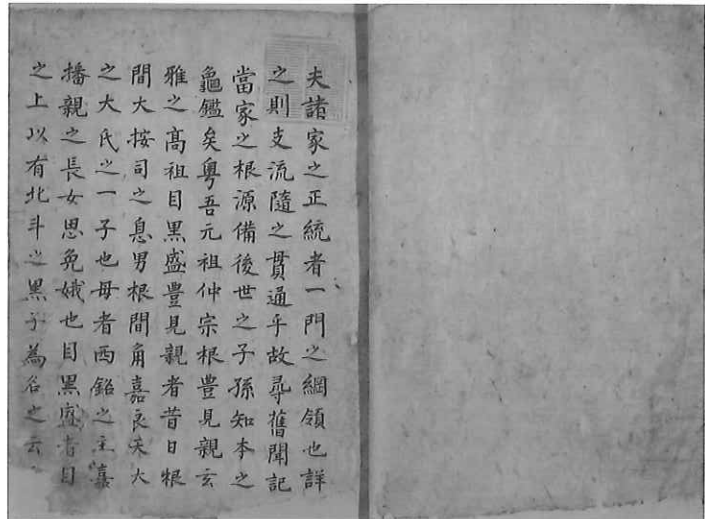 夫諸家之正統者一門之綱領也詳
之則支流隨之貫通乎故尋舊聞記
當家之根源備後世之子孫知本之
龜鑑矣粤吾元祖仲宗根豊見親玄
雅之髙祖目黒盛豊見親者昔日根
間大按司之息男根間角嘉良天大
之大氏之一子也母者西銘之主嘉
播親之長女思免娥也目黒盛者目
之上以有北斗之黒子為名之云〻